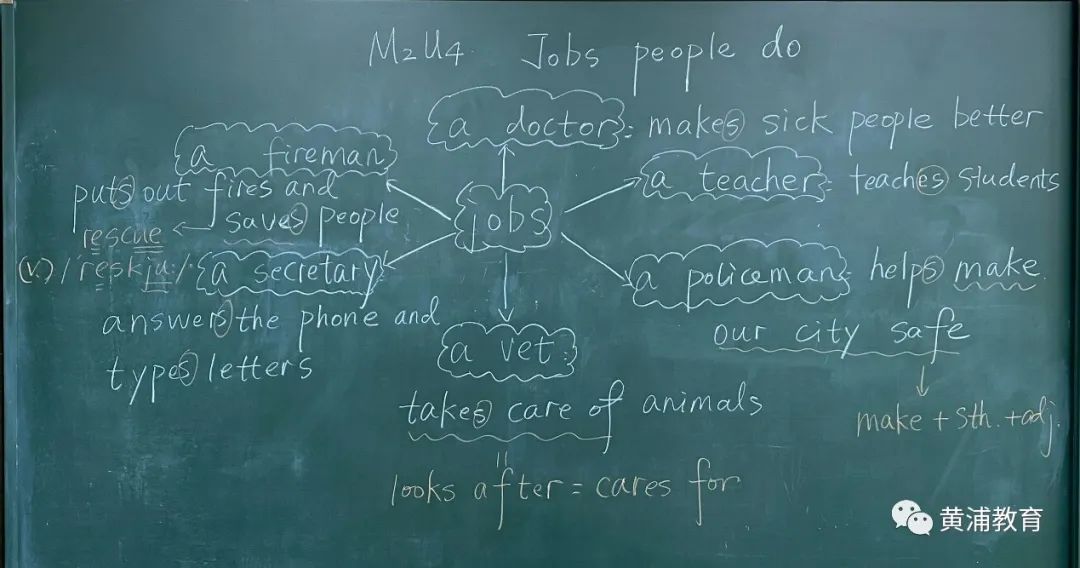 M2U4 Jobs people do
a doctor: makes sick people better
a fireman
puts out fires and
saves people
rescue
(v.) /'reskju:/
a teacher: teaches students
jobs
a secretary
answers the phone and
types letters
a policeman: helps make
our city safe
make + sth. + adj.
a vet:
takes care of animals
=
looks after = cares for
黄浦教育